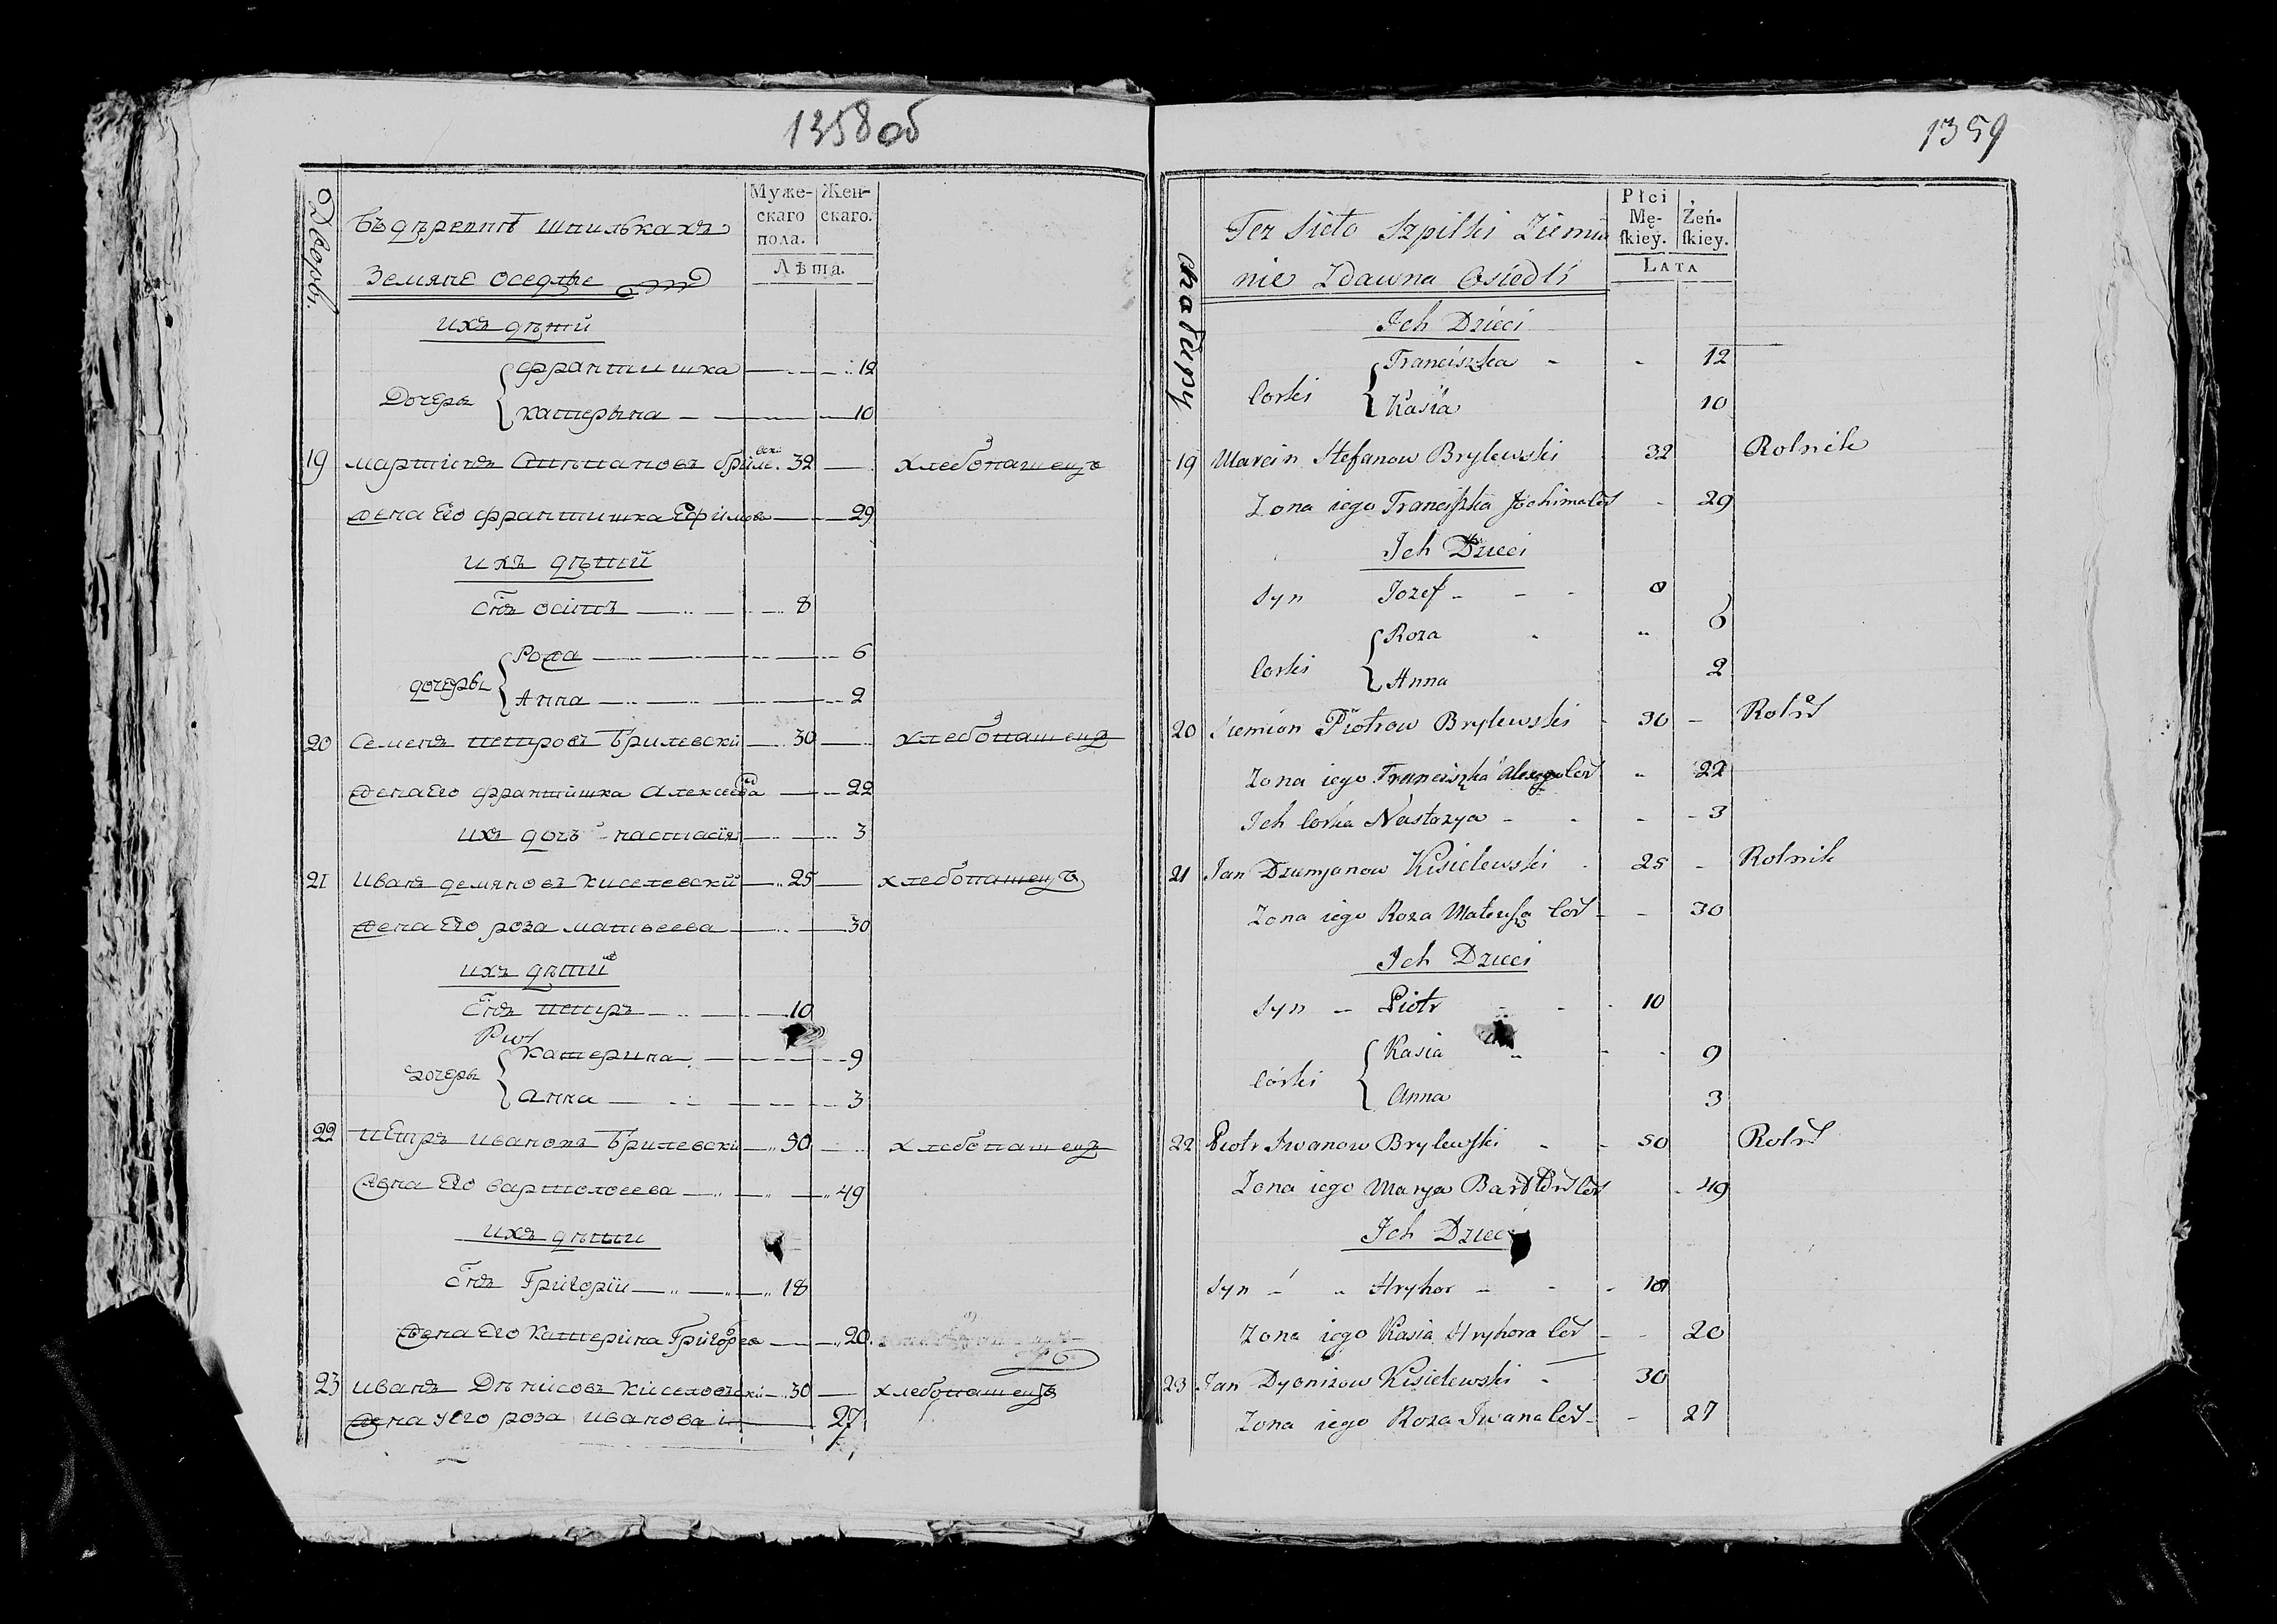 1358об
Дворы.
Въ деревнѣ шпилькахъ
Земяне оседлые
Муже-
скаго
пола.
Жен-
скаго.
Лѣта.
ихъ дѣтй
Дочеры
Францишка 12
Катерына 10
19 мартинъ Стѣпановъ брилев. 32 хлебопашецъ
жена Его францишка Ефимова 29
ихъ дѣтй
Снъ осипъ 8
дочеры
Рожа 6
Анна 2
20 Семенъ петровъ Брилевски 30 хлебопашецъ
жена Его францишка Алексеева 22
ихъ дочъ настасія 3
21 иванъ демяновъ киселевский 25 хлебопашецъ
жена Его роза матвеева 30
ихъ дѣтй
Снъ петръ 10
Piot
дочеры
катерина 9
анна 3
22 петръ ивановъ Брилевски 50 хлебопашецъ
жена Его вартоломеева 49
ихъ дѣти
Снъ Григорій 18
жена Его Катерина Григорева 20
23 иванъ Дѣнисовъ киселевски 30 хлебопашецъ
жена Его роза иванова 27
1359
chałupy
Tez Sieło Szpilki Ziemia
nie Zdawna Osiedli
Płci
Mę-
skiey.
Żeń-
skiey.
LATA
Ich Dzieci
Corki
Franciszka 12
Kasia 10
19 Marcin Stefanow Brylewski 32 Rolnik
Zona iego Franciszka Jochima Cor 29
Ich Dzieci
Syn Jozef 8
Corki
Roza 6
Anna 2
20 Siemion Piotrow Brylewski 30 Roln
Zona iego Franciszka Cor 22
Ich Corka Nastazya 3
21 Jan Dzumjanow Kisielewski 25 Rolnik
Zona iego Roza Mateusza Cor 30
Ich Dzieci
Syn Piotr 10
Córki
Kasia 9
Anna 3
22 Piotr Iwanow Brylewski 50 Roln
Zona iego Marya Cor 49
Ich Dzieci
Syn Hryhor 18
Zona iego Kasia Hryhora Cor 20
23 Jan Dyonizow Kisielewski 30
Zona iego Roza Iwana Cor 27